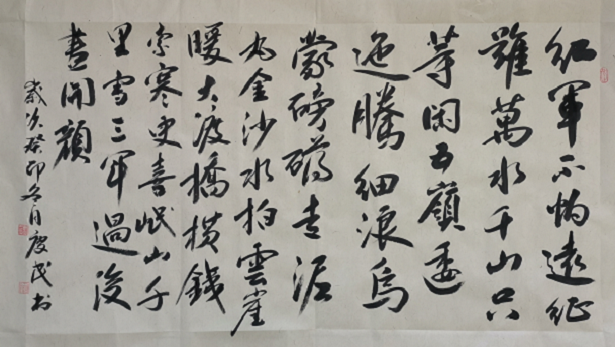 紅軍不怕遠征
難萬水千山只
等閑五嶺逶
迤騰細浪烏
蒙磅礴走泥
丸金沙水拍雲崖
暖大渡橋橫鐵
索寒更喜岷山千
里雪三軍過後
盡開顏
歲次癸卯冬月民书